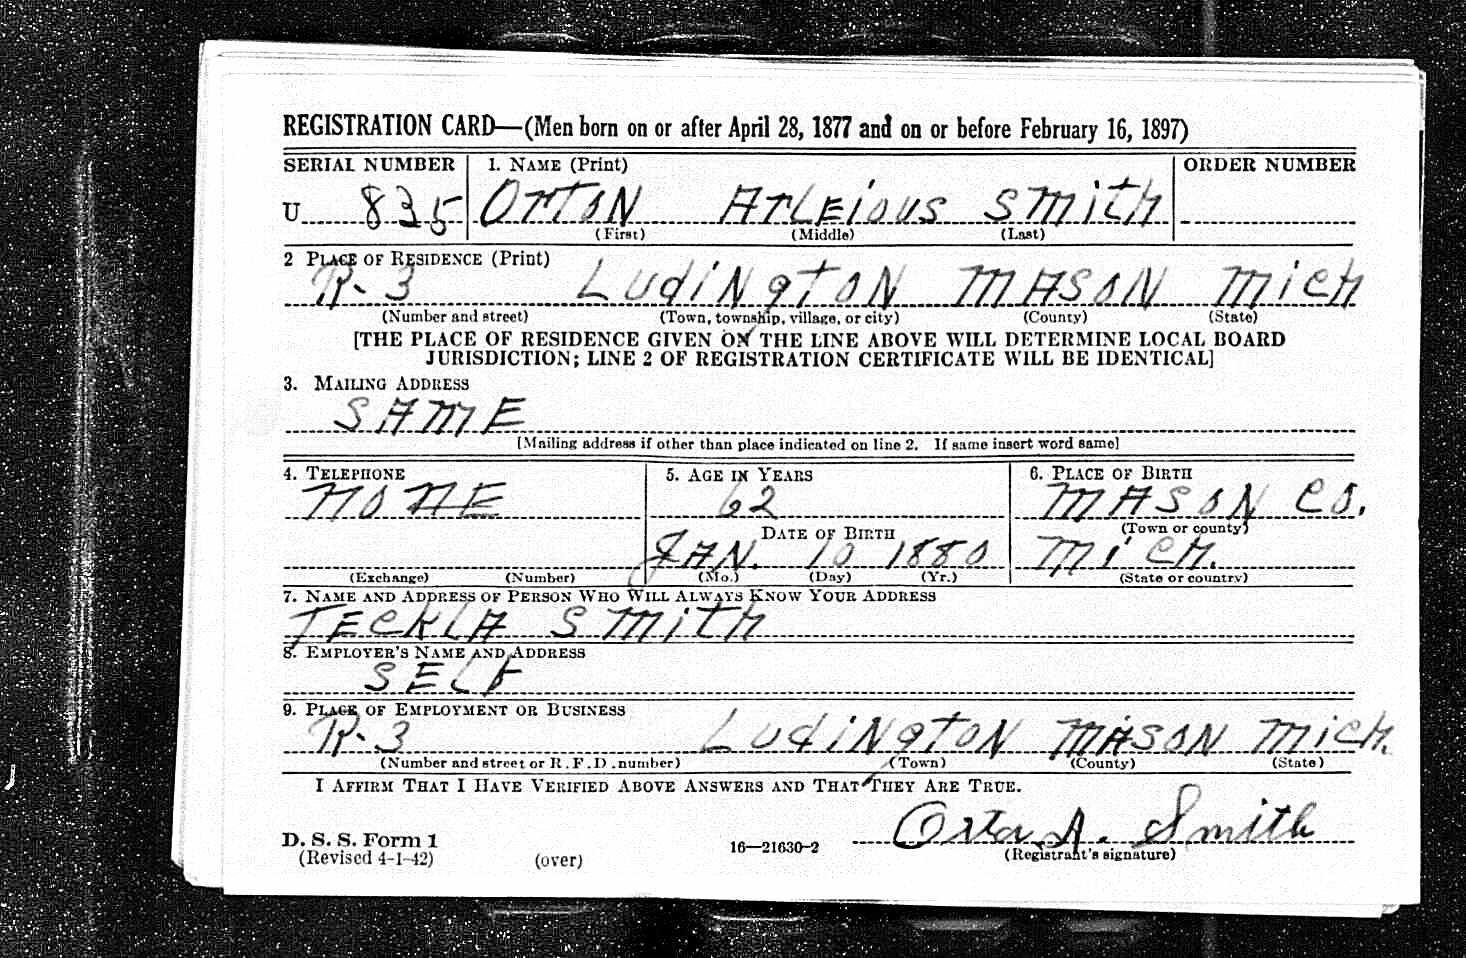 REGISTRATION CARD—(Men born on or after April 28, 1877 and on or before February 16, 1897)
SERIAL NUMBER 1. NAME (Print) ORDER NUMBER
U 835 ORTON ARLEIOUS SMITH
(First) (Middle) (Last)
2 PLACE OF RESIDENCE (Print)
R-3 LUDINGTON MASON MICH
(Number and street) (Town, township, village, or city) (County) (State)
[THE PLACE OF RESIDENCE GIVEN ON THE LINE ABOVE WILL DETERMINE LOCAL BOARD
JURISDICTION; LINE 2 OF REGISTRATION CERTIFICATE WILL BE IDENTICAL]
3. MAILING ADDRESS
SAME
[Mailing address if other than place indicated on line 2. If same insert word same]
4. TELEPHONE 5. AGE IN YEARS 6. PLACE OF BIRTH
NONE 62 MASON CO.
DATE OF BIRTH (Town or county)
JAN. 10 1880 MICH.
(Exchange) (Number) (Mo.) (Day) (Yr.) (State or country)
7. NAME AND ADDRESS OF PERSON WHO WILL ALWAYS KNOW YOUR ADDRESS
TECKLA SMITH
8. EMPLOYER'S NAME AND ADDRESS
SELF
9. PLACE OF EMPLOYMENT OR BUSINESS
R-3 LUDINGTON MASON MICH.
(Number and street or R.F.D. number) (Town) (County) (State)
I AFFIRM THAT I HAVE VERIFIED ABOVE ANSWERS AND THAT THEY ARE TRUE.
D. S. S. Form 1 A. Smith
(Revised 4-1-42) (over) 16—21630-2 (Registrant's signature)